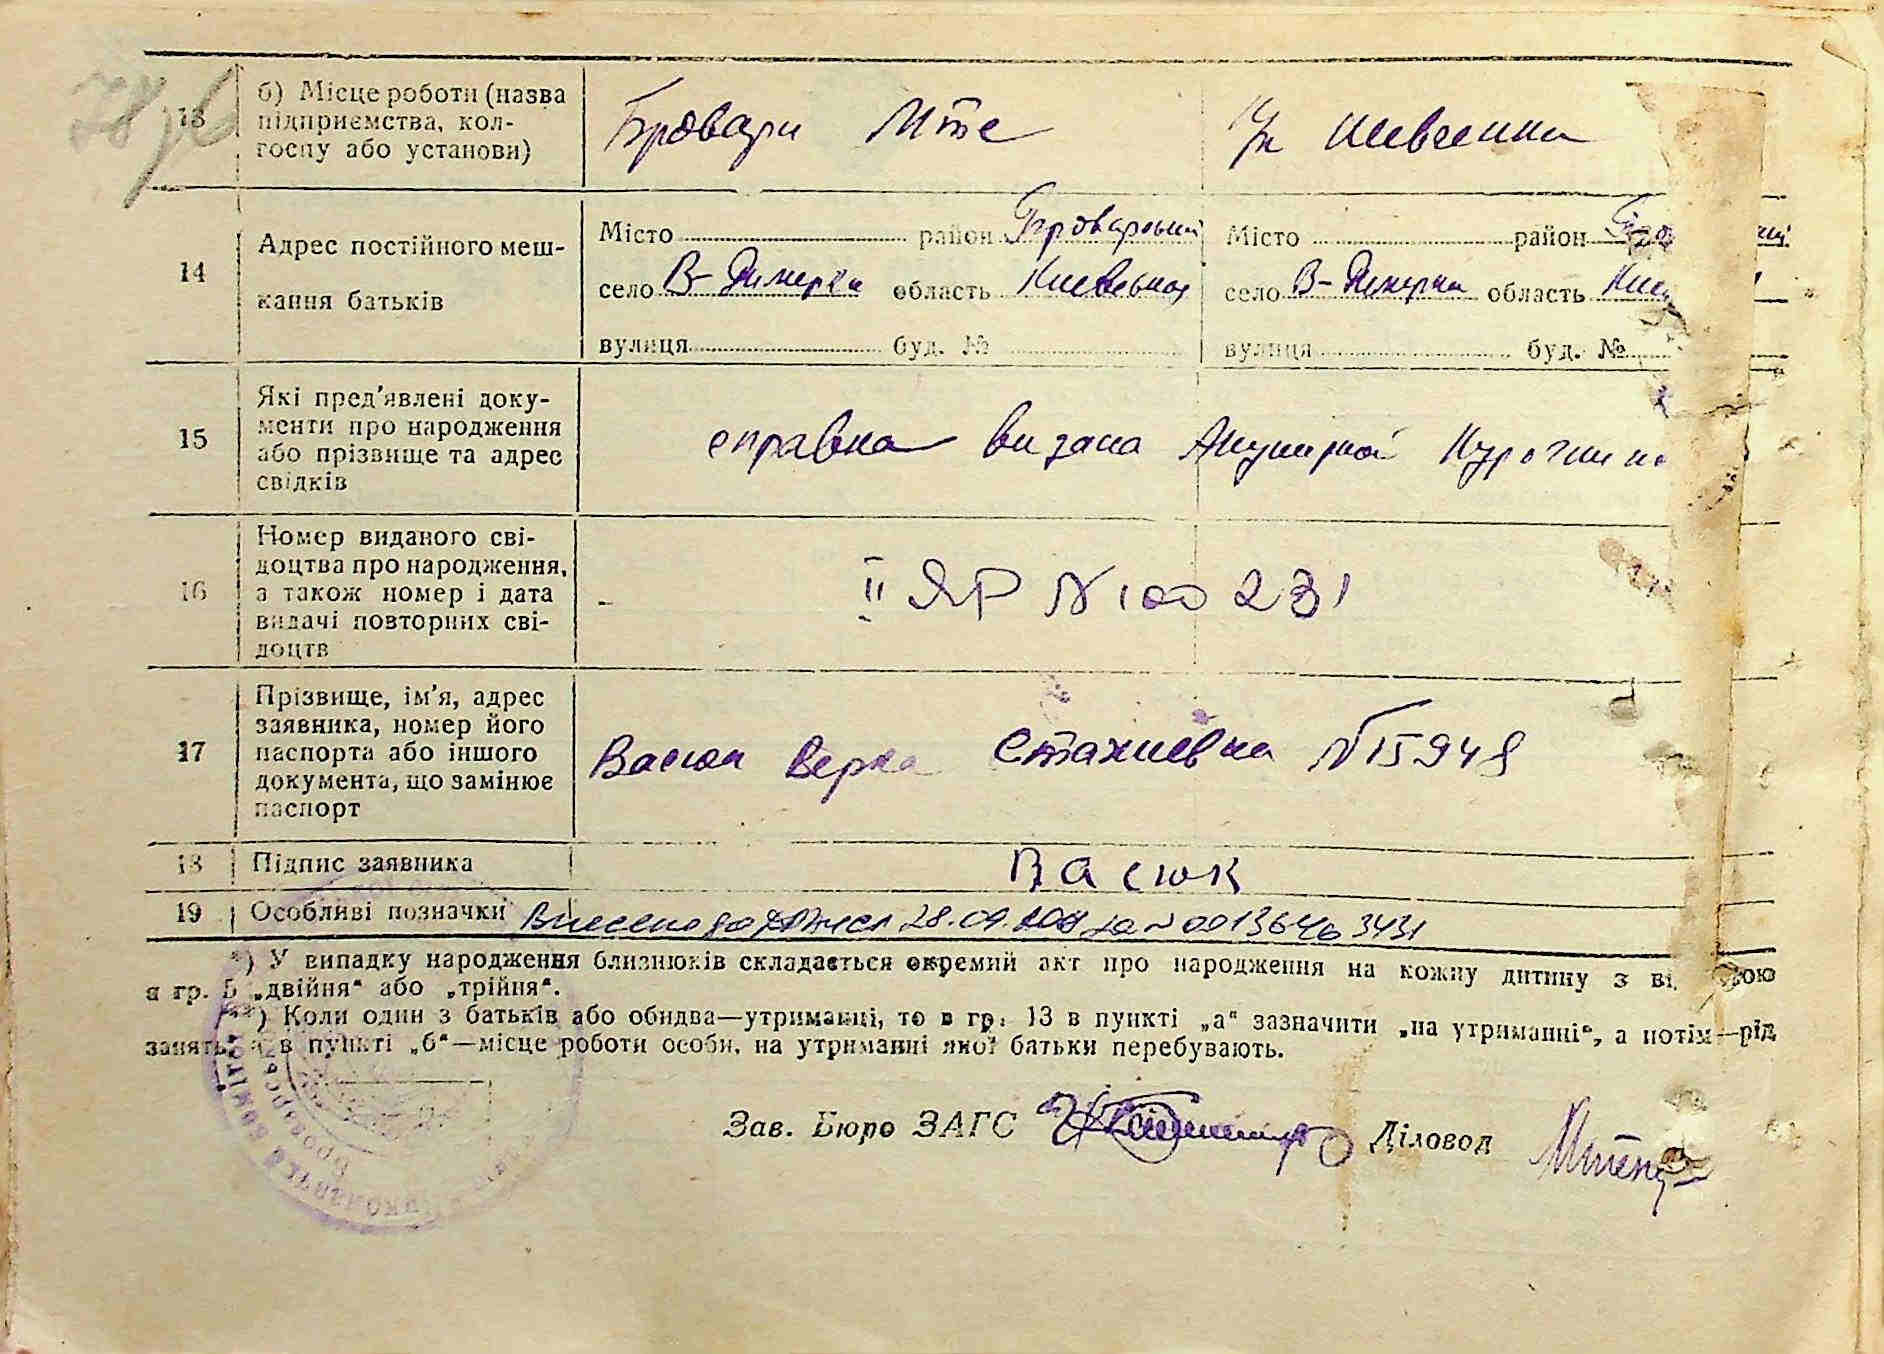 78
13 б) Місце роботи (назва
підприємства, кол-
госпу або установи)
Бровари Мтс
к/г Шевченка
14 Адрес постійного меш-
кання батьків
Місто район Броварський
село В-Димерка область Киевская
вулиця буд. №
Місто район
село В-Димерка область
вулиця буд. №
15 Які пред'явлені доку-
менти про народження
або прізвище та адрес
свідків
справка видана Акушеркой
16 Номер виданого сві-
доцтва про народження,
а також номер і дата
видачі повторних сві-
доцтв
- II ЯР N 100231
17 Прізвище, ім'я, адрес
заявника, номер його
паспорта або іншого
документа, що замінює
паспорт
Васюк Вера Стахиевна N 15948
18 Підпис заявника Васюк
19 Особливі позначки Внесено до 28.09. за N 00136463431
*) У випадку народження близнюків складається окремий акт про народження на кожну дитину з
в гр. 5 „двійня“ або „трійня“.
**) Коли один з батьків або обидва—утриманці, то в гр. 13 в пункті „а“ зазначити „на утриманні“, а потім—рід
занять, а в пункті „б“—місце роботи особи, на утриманні якої батьки перебувають.
Зав. Бюро ЗАГС Діловод